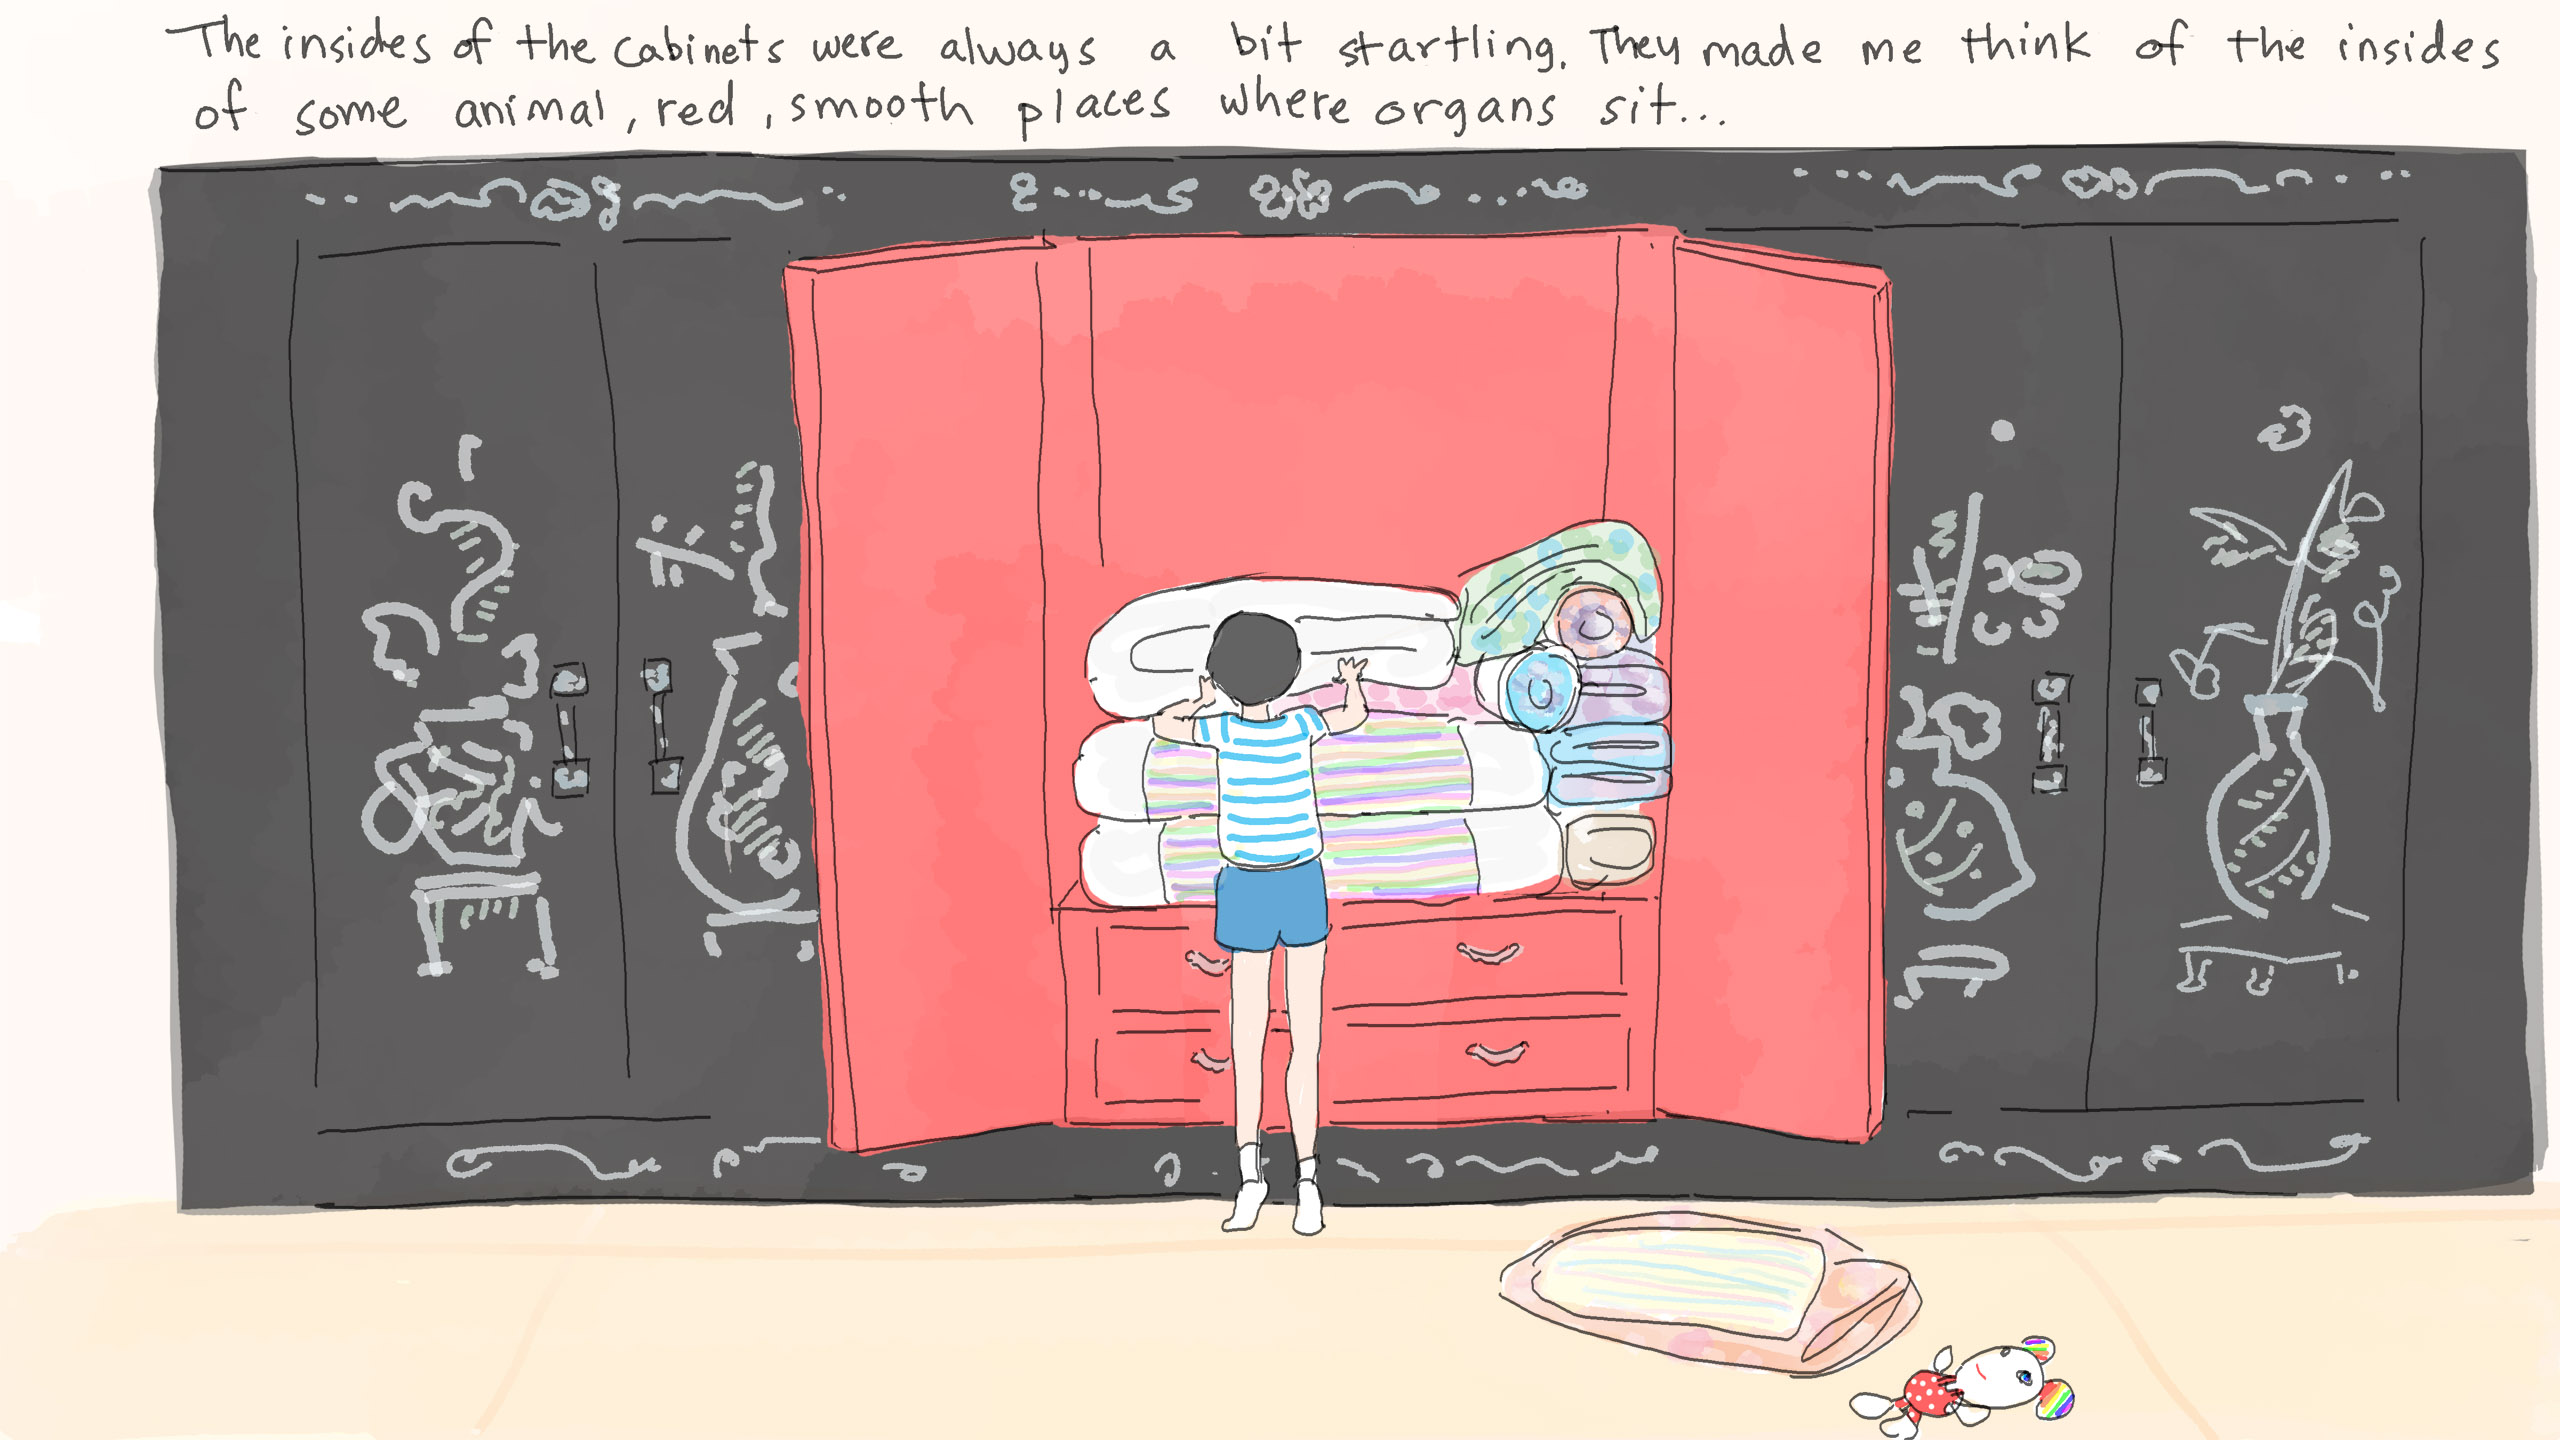 The insides of the cabinets were always a bit startling. They made me think of the insides
of some animal, red, smooth places where organs sit...